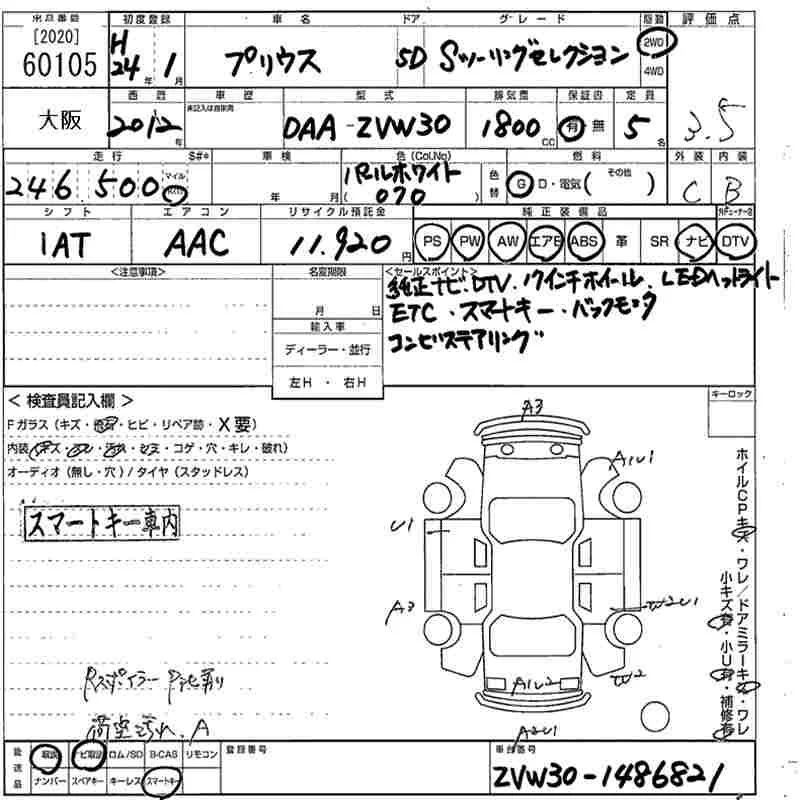 東京番号 初度登録 車名 ドア グレード 駆動 評価点
[2020]
60105
H 24年 1月
プリウス 5D Sツーリングセレクション
2WD
4WD
大阪
西暦 車歴 型式 排気量 保証書 定員
未記入は自家用
2012年 DAA-ZVW30 1800cc 有・無 5名
3.5
走行 S#* 車検 色(Col,No) 燃料 外装 内装
246,500 マイル
年 月
パールホワイト
(070)
色替
G D・電気( その他 )
C B
シフト エアコン リサイクル預託金 純正装備品
1AT AAC 11,920円
PS PW AW エアB ABS 革 SR ナビ DTV
<注意事項> 名変期限 <セールスポイント>
月 日
輸入車
ディーラー・並行
左H・右H
純正ナビ.DTV.17インチホイール.LEDヘッドライト
ETC・スマートキー・バックモニタ
コンビステアリング
<検査員記入欄>
キーロック
Fガラス(キズ・飛石・ヒビ・リペア跡・X要)
内装(キズ・スレ・汚れ・シミ・コゲ・穴・キレ・破れ)
オーディオ(無し・穴)/タイヤ(スタッドレス)
スマートキー車内
Rスポイラー
A
A3
A1U1
U1
A3
W2U1
W2
A1U2
A2U1
ホイルCPキズ・ワレ/ドアミラーキズ・ワレ
小キズ有・小U有・補修有
後送品
取説 ナビ取説 ロム/SD B-CAS リモコン
ナンバー スペアキー キーレス スマートキー
登録番号
車台番号
ZVW30-1486821